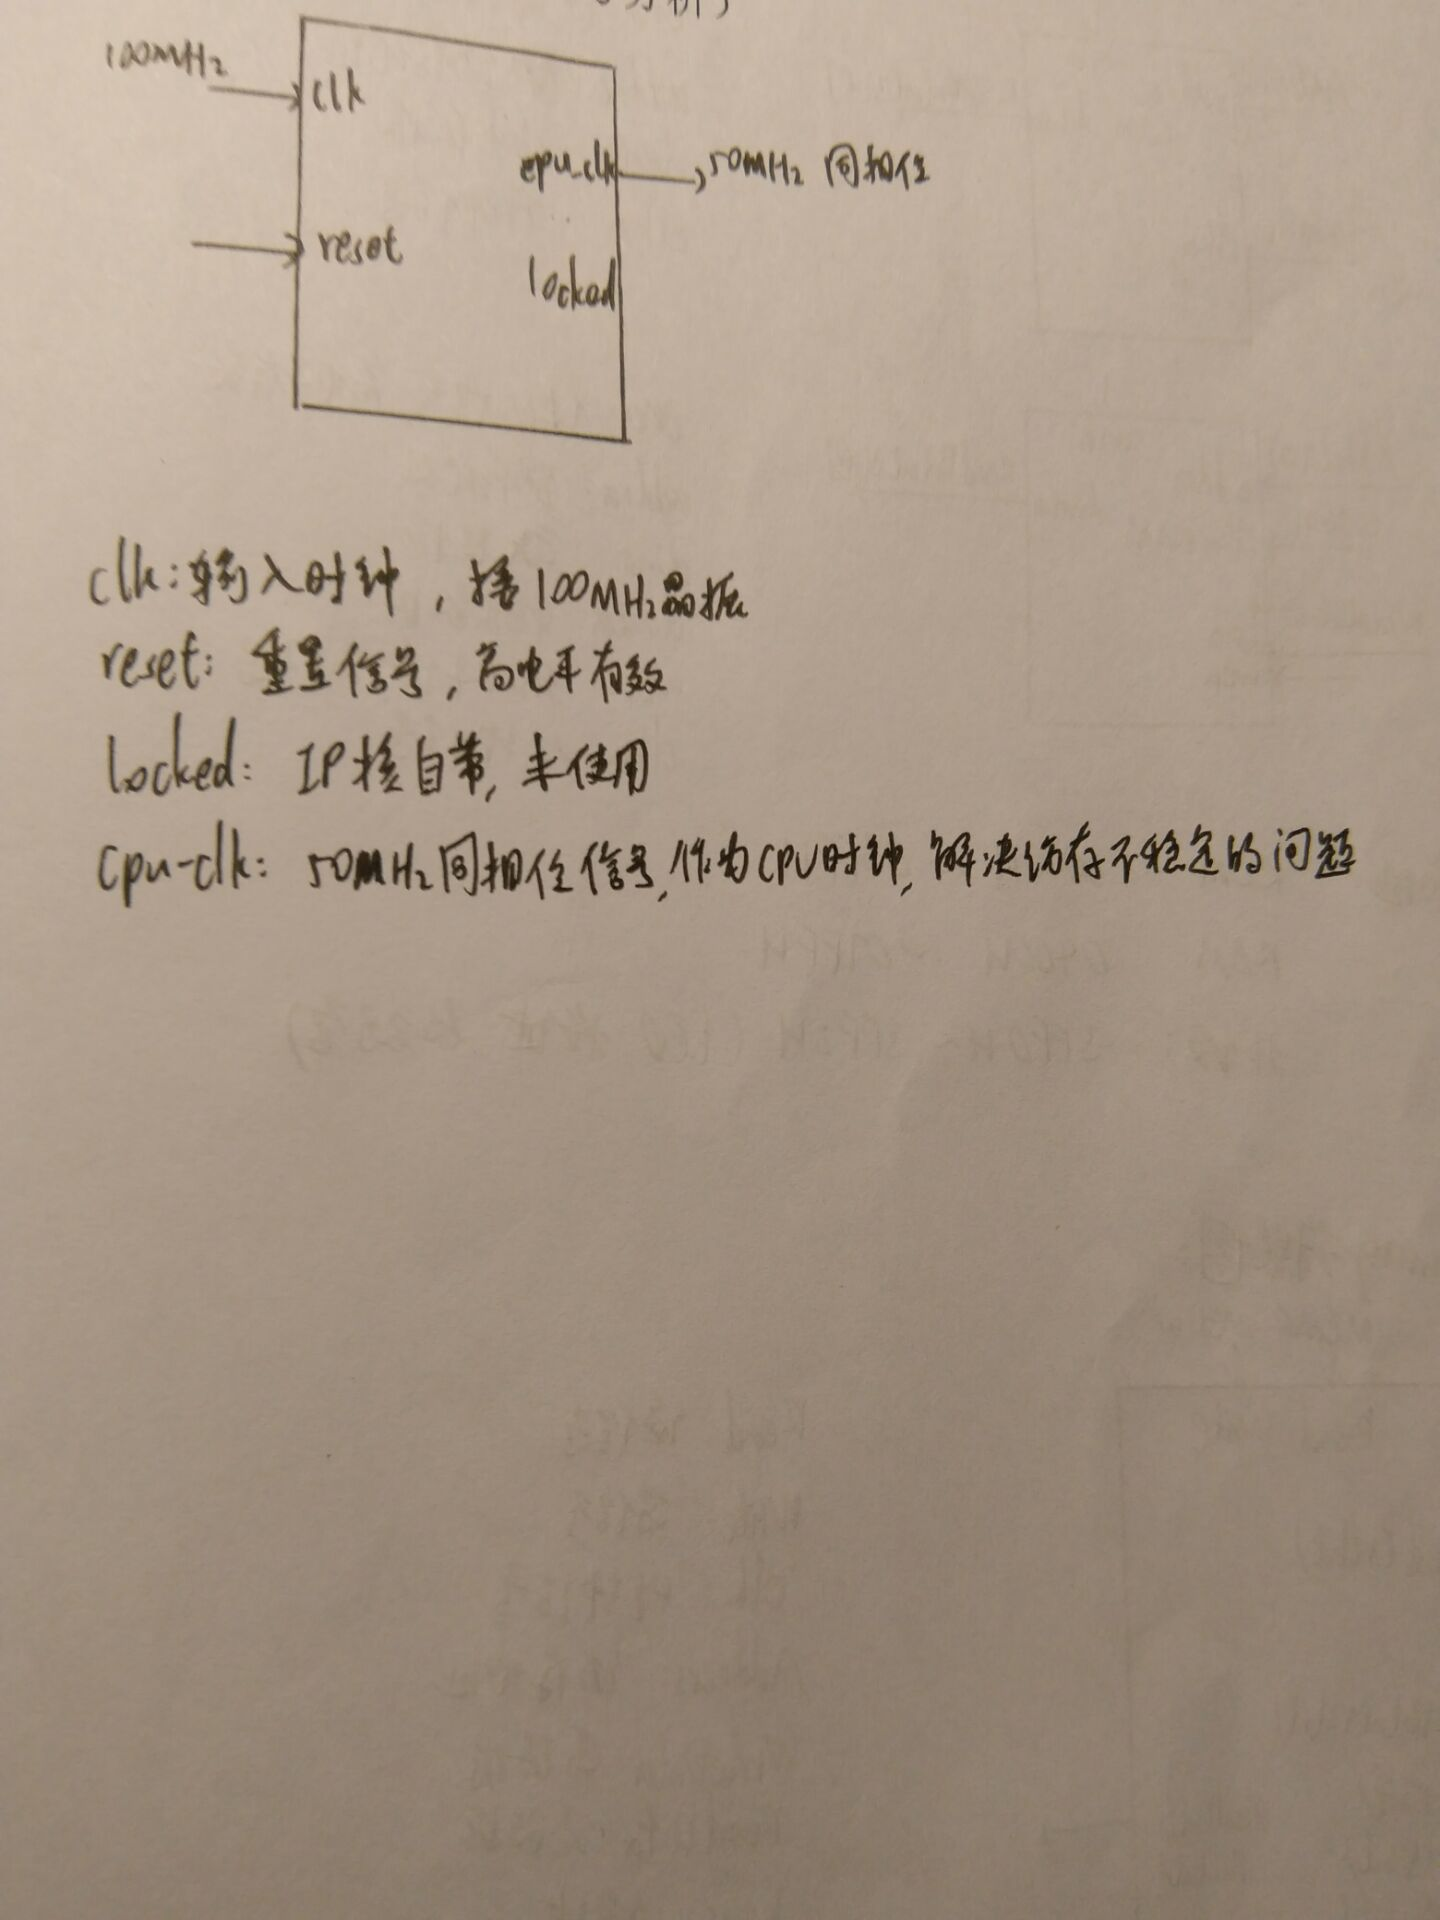 100MHz
clk
cpu_clk
50MHz 同相位
reset
locked
clk: 输入时钟, 接100MHz晶振
reset: 重置信号, 高电平有效
locked: IP核自带, 未使用
cpu-clk: 50MHz同相位信号, 作为CPU时钟, 解决访存不稳定的问题